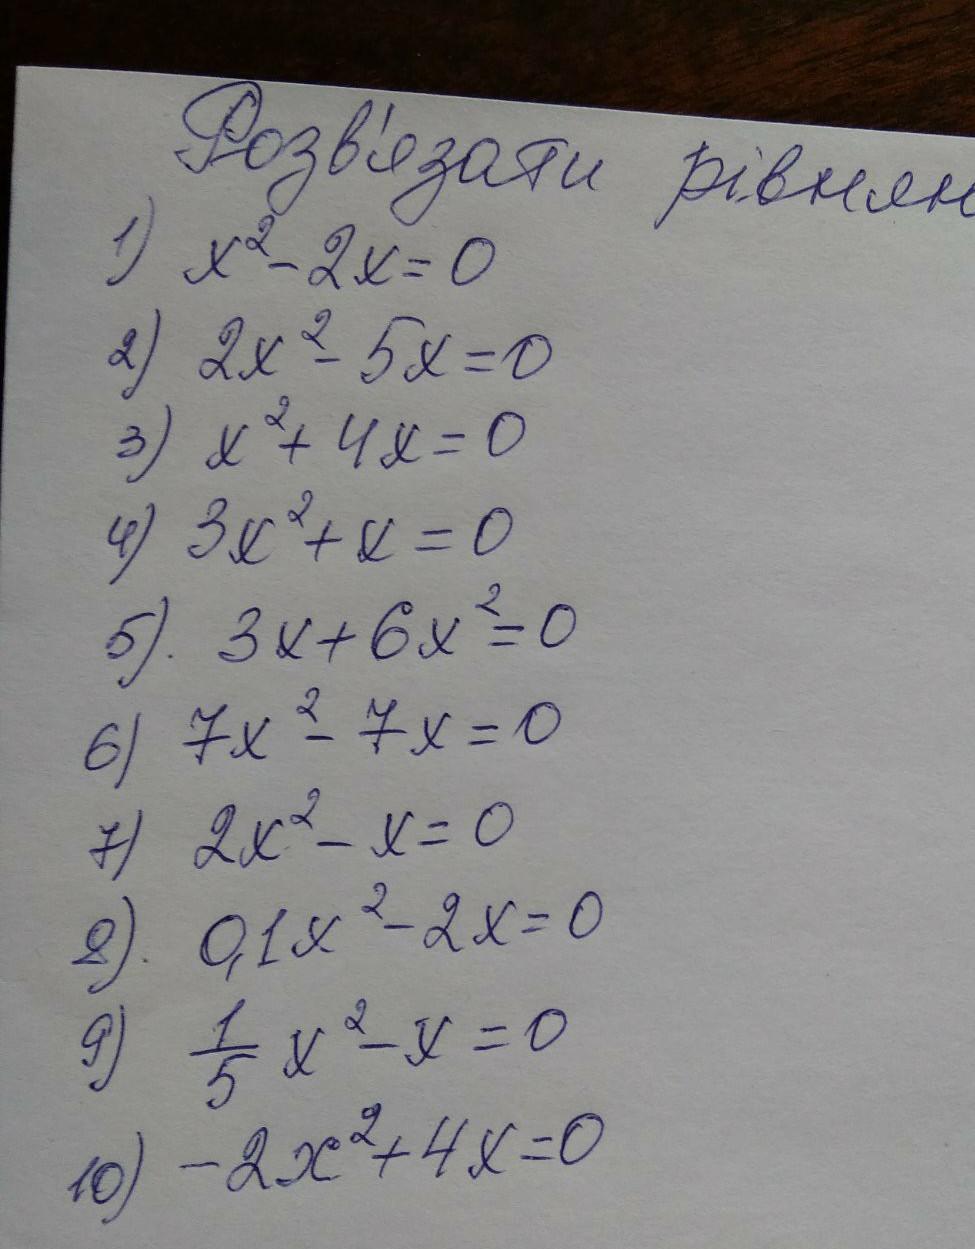 Розв'язати рівнян
1) x² - 2x = 0
2) 2x² - 5x = 0
3) x² + 4x = 0
4) 3x² + x = 0
5). 3x + 6x² = 0
6) 7x² - 7x = 0
7) 2x² - x = 0
8). 0,1x² - 2x = 0
9) 1/5 x² - x = 0
10) -2x² + 4x = 0